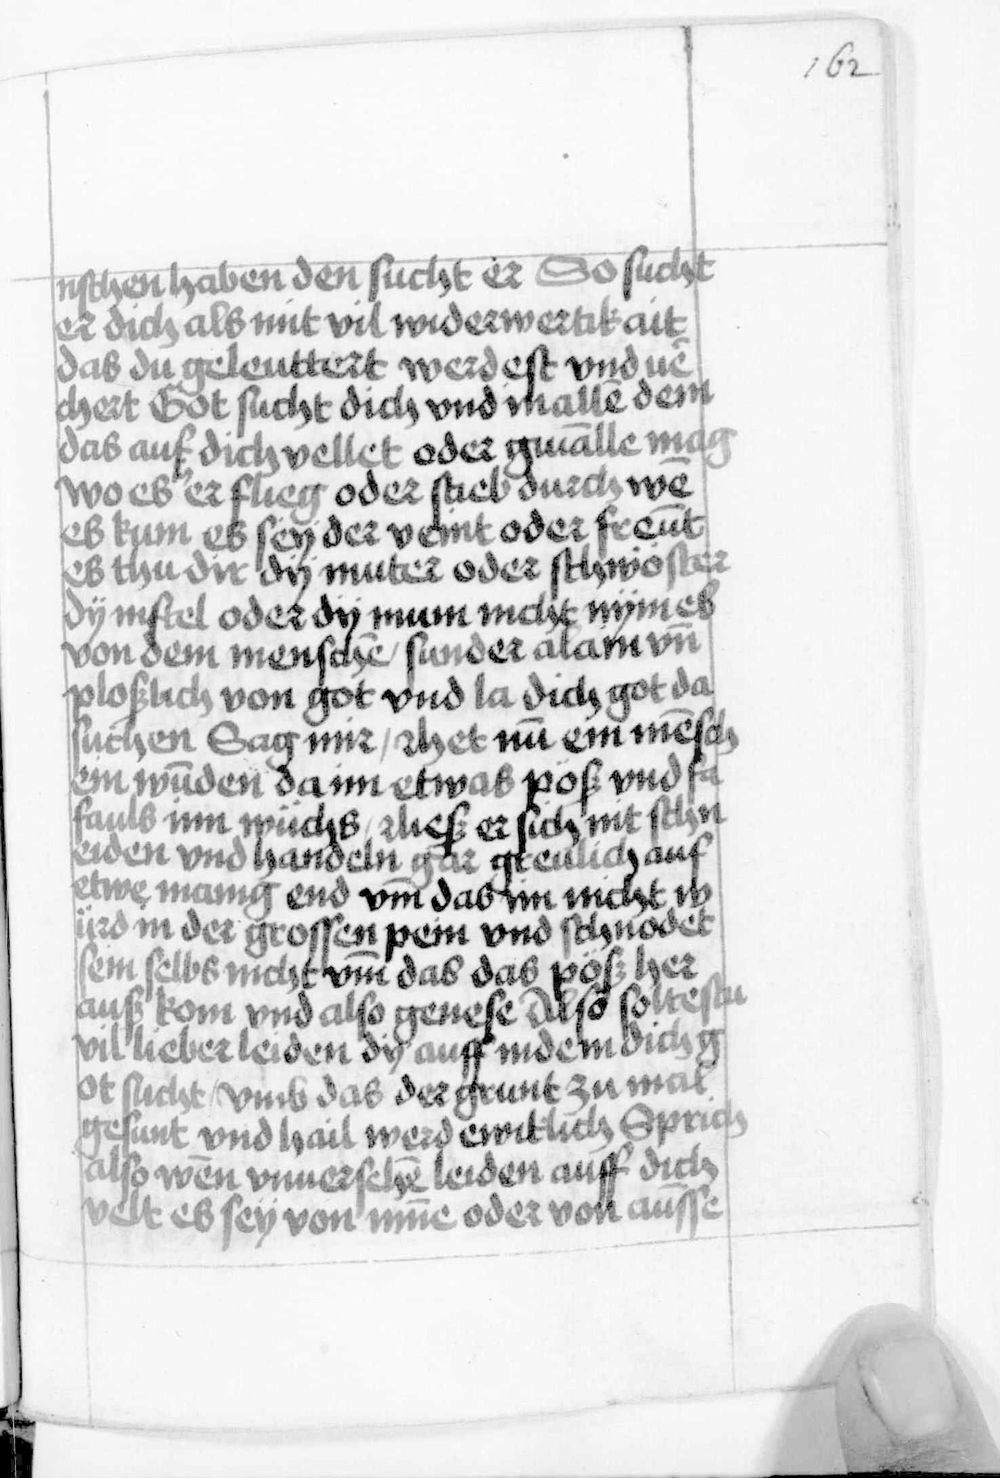 162
nschen haben den sucht er So sucht
er dich als mit vil widerwertikait
das du geleuttert werdest vnd uē
chert Got sucht dich vnd in allē dem
das auf dich vellet oder gevallē mag
wo es er flieg oder stieb durch wē
es kum es sey der veint oder freūt
es thu dir dÿ muter oder schwöster
dÿ niftel oder dÿ mum nicht nÿm es
von dem menschē / sunder alain vn̄
ploßlich von got vnd la dich got da
suchen Sag mir / rhet nū ein mēsch
ein wūden da im etwas pöß vnd fa
fauls inn wüchs / rließ er sich nit schn
eiden vnd handeln gar greulich auf
etwe manig end vm̄ das im nicht w
ürd in der grossen pein vnd schnödet
sein selbs nicht vm̄ das das pöß her
auß kom vnd also genese Also soltestu
vil lieber leiden dÿ auff in dem dich g
ot sucht / vmb das der grunt zu mal
gesunt vnd hail werd ewitlich Sprich
also wēn vnuersehē leiden auff dich
velt es sey von inn̄e oder von aūsse